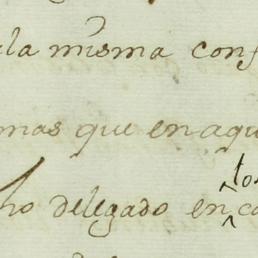 la misma conf
mas que en aqu
to
ho delegado en ca